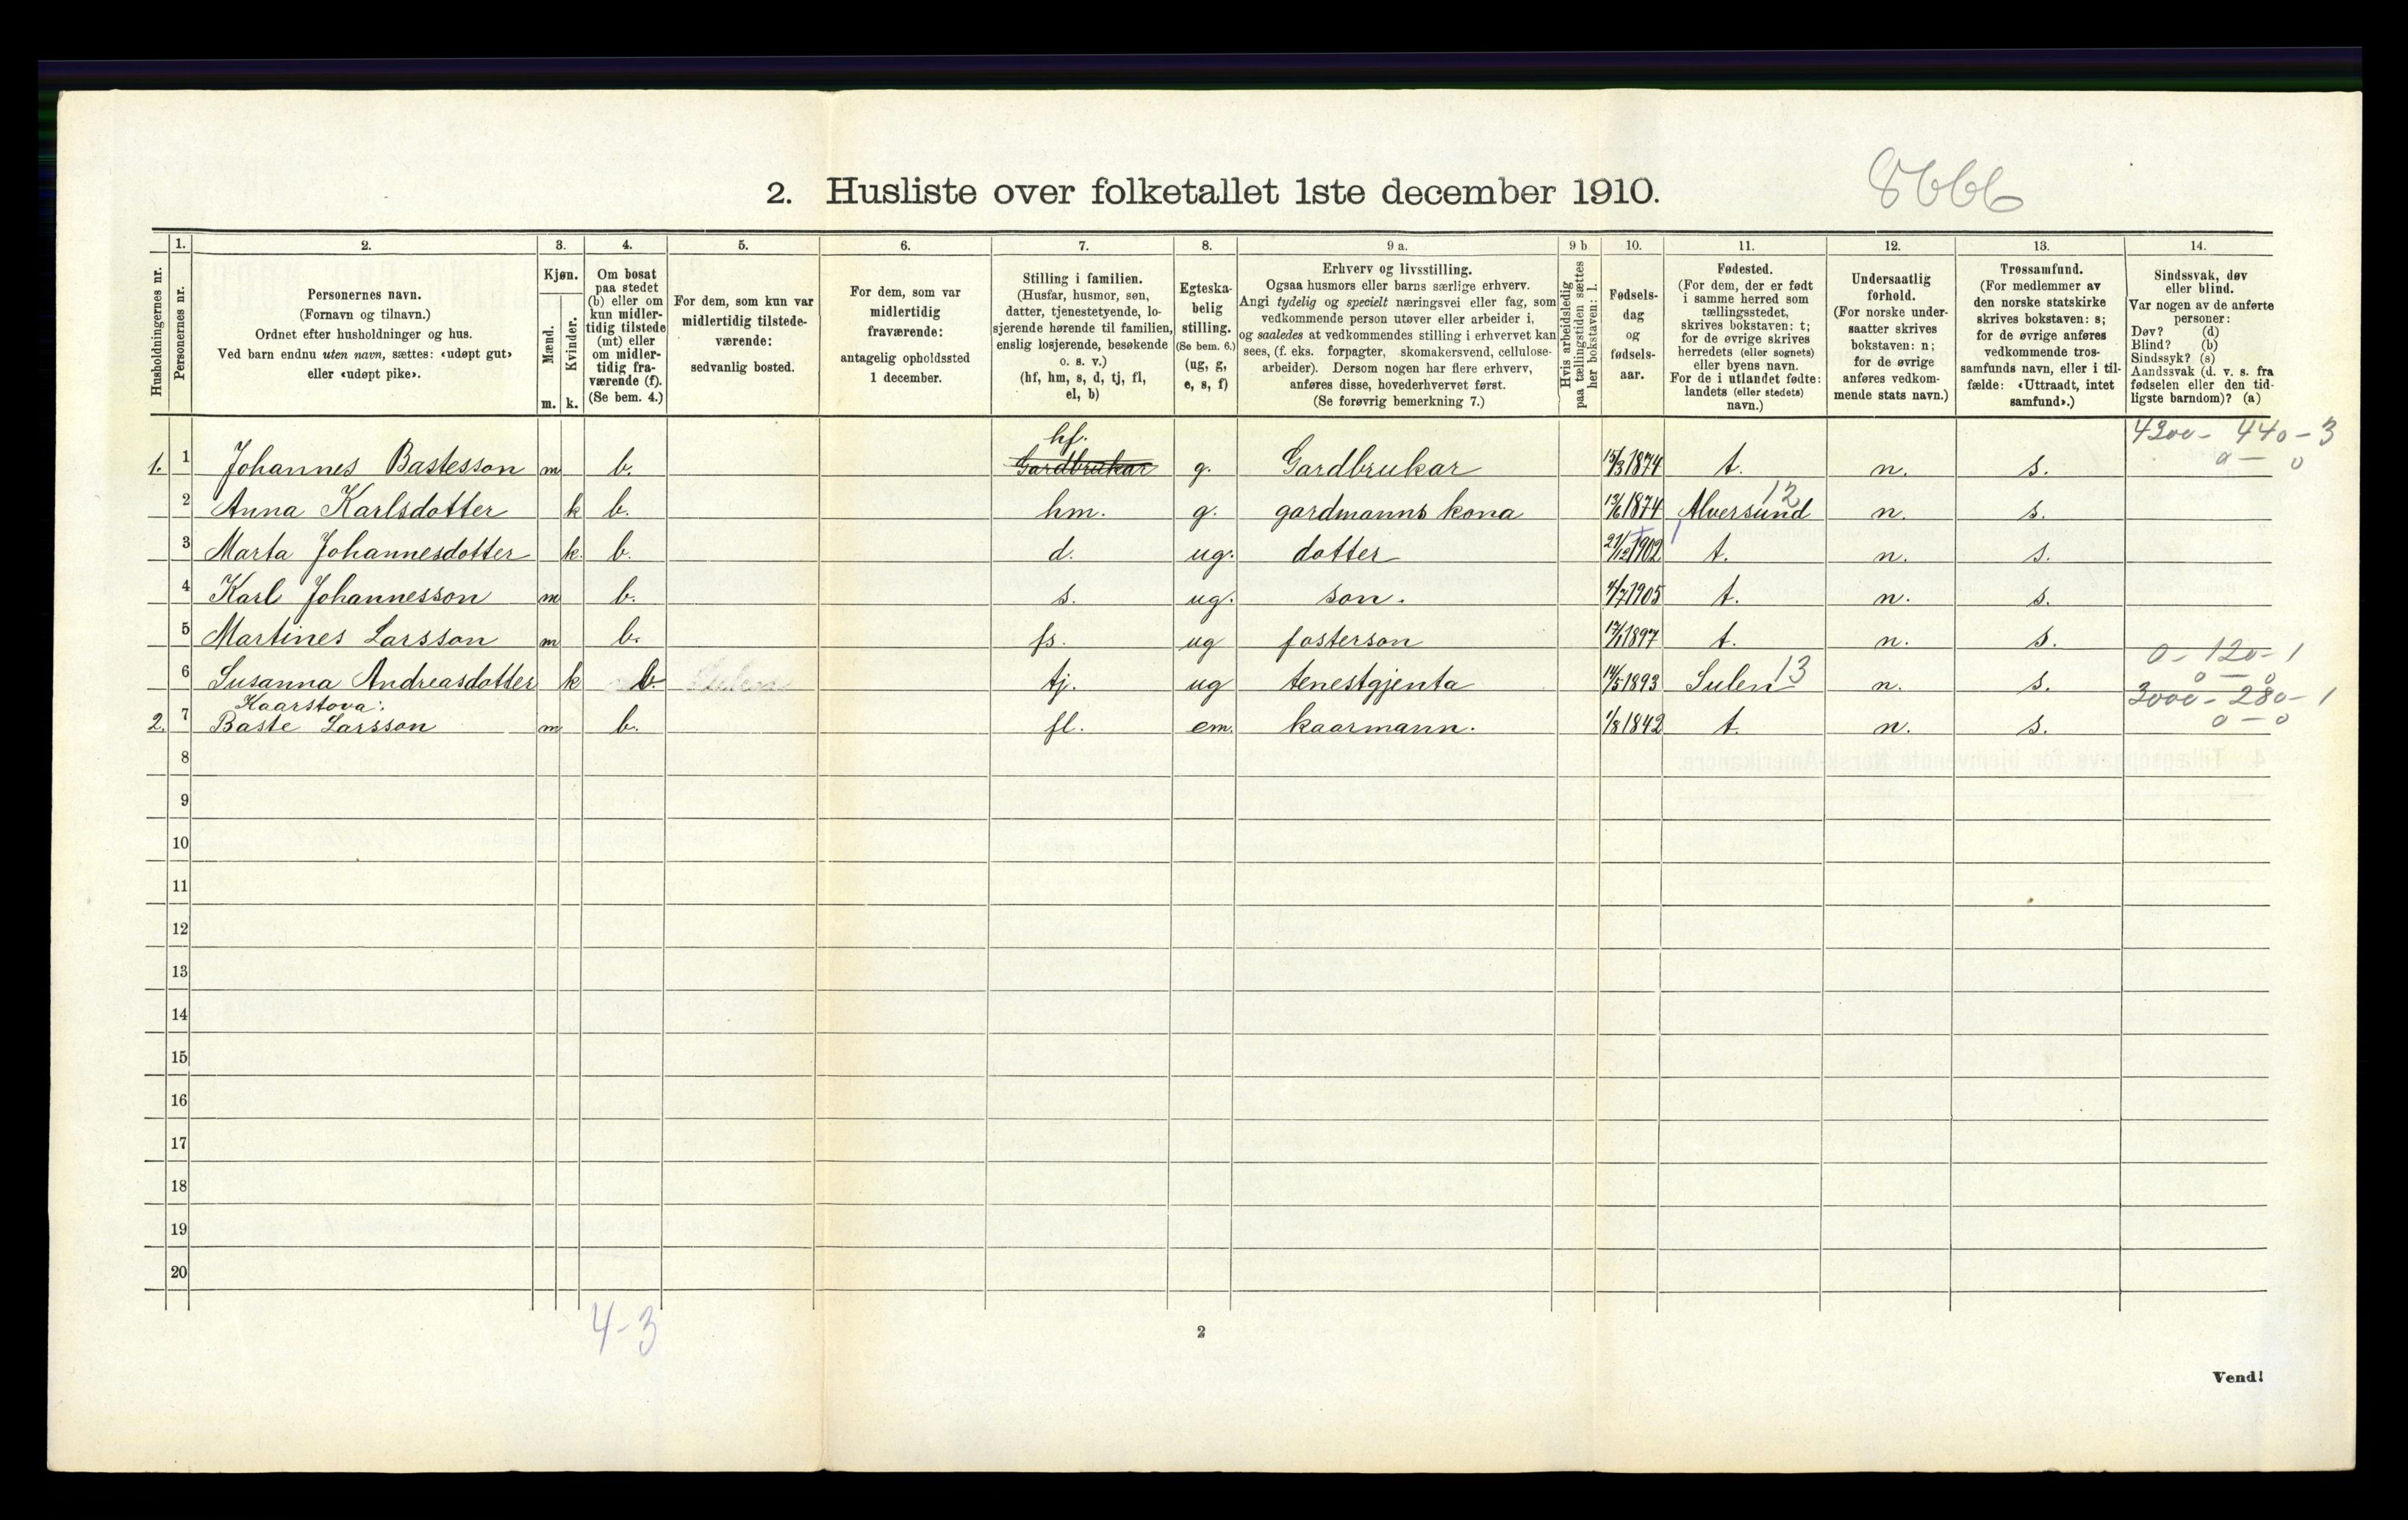 2. Husliste over folketallet 1ste december 1910.
8666
Husholdningernes nr.
1.
Personernes nr.
2.
Personernes navn.
(Fornavn og tilnavn.)
Ordnet efter husholdninger og hus.
Ved barn endnu uten navn, sættes: «udøpt gut»
eller «udøpt pike».
3.
Kjøn.
Mænd.
m.
Kvinder.
k.
4.
Om bosat
paa stedet
(b) eller om
kun midler-
tidig tilstede
(mt) eller
om midler-
tidig fra-
værende (f).
(Se bem. 4.)
5.
For dem, som kun var
midlertidig tilstede-
værende:
sedvanlig bosted.
6.
For dem, som var
midlertidig
fraværende:
antagelig opholdssted
1 december.
7.
Stilling i familien.
(Husfar, husmor, søn,
datter, tjenestetyende, lo-
sjerende hørende til familien,
enslig losjerende, besøkende
o. s. v.)
(hf, hm, s, d, tj, fl,
el, b)
8.
Egteska-
belig
stilling.
(Se bem. 6.)
(ug, g,
e, s, f)
9 a.
Erhverv og livsstilling.
Ogsaa husmors eller barns særlige erhverv.
Angi tydelig og specielt næringsvei eller fag, som
vedkommende person utøver eller arbeider i,
og saaledes at vedkommendes stilling i erhvervet kan
sees, (f. eks. forpagter, skomakersvend, cellulose-
arbeider). Dersom nogen har flere erhverv,
anføres disse, hovederhvervet først.
(Se forøvrig bemerkning 7.)
9 b
Hvis arbeidsledig
paa tællingstiden sættes
her bokstaven: l.
10.
Fødsels-
dag
og
fødsels-
aar.
11.
Fødested.
(For dem, der er født
i samme herred som
tællingsstedet,
skrives bokstaven: t;
for de øvrige skrives
herredets (eller sognets)
eller byens navn.
For de i utlandet fødte:
landets (eller stedets)
navn.)
12.
Undersaatlig
forhold.
(For norske under-
saatter skrives
bokstaven: n;
for de øvrige
anføres vedkom-
mende stats navn.)
13.
Trossamfund.
(For medlemmer av
den norske statskirke
skrives bokstaven: s;
for de øvrige anføres
vedkommende tros-
samfunds navn, eller i til-
fælde: «Uttraadt, intet
samfund».)
14.
Sindssvak, døv
eller blind.
Var nogen av de anførte
personer:
Døv? (d)
Blind? (b)
Sindssyk? (s)
Aandssvak (d. v. s. fra
fødselen eller den tid-
ligste barndom)? (a)
hf. 4200- 440-3
1. 1 Johannes Bastesson m b. Gardbrukar g. Gardbrukar 15/3 1874 t. n. s. 0 — 0
12
2 Anna Karlsdotter k b. hm. g. gardmanns kona 13/6 1874 Alversund n. s.
3 Marta Johannesdotter k. b. d. ug. dotter 21/12 1902 t. n. s.
4 Karl Johannesson m b. s. ug. son. 4/7 1905 t. n. s.
5 Martines Larsson m b. fs. ug fosterson 17/1 1897 t. n. s.
0- 120-1
6 Susanna Andreasdotter k b. tj. ug tenestgjenta 14/5 1893 Sulen 13 n. s. 0 — 0
Kaarstova: 3000- 280-1
2. 7 Baste Larsson m b. fl. em. kaarmann. 1/8 1842 t. n. s. 0 — 0
8
9
10
11
12
13
14
15
16
17
18
19
20
4-3
2
Vend!